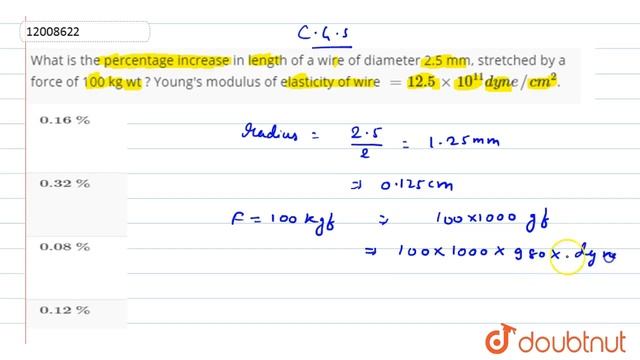 12008622
C.G.S
What is the percentage increase in length of a wire of diameter 2.5 mm, stretched by a
force of 100 kg wt ? Young's modulus of elasticity of wire = 12.5 × 10¹¹ dyne/cm².
0.16 %
0.32 %
0.08 %
0.12 %
Radius = 2.5/2 = 1.25mm
⇒ 0.125cm
F = 100 kgf ⇒ 100×1000 gf
⇒ 100×1000×980×. dyne
doubtnut